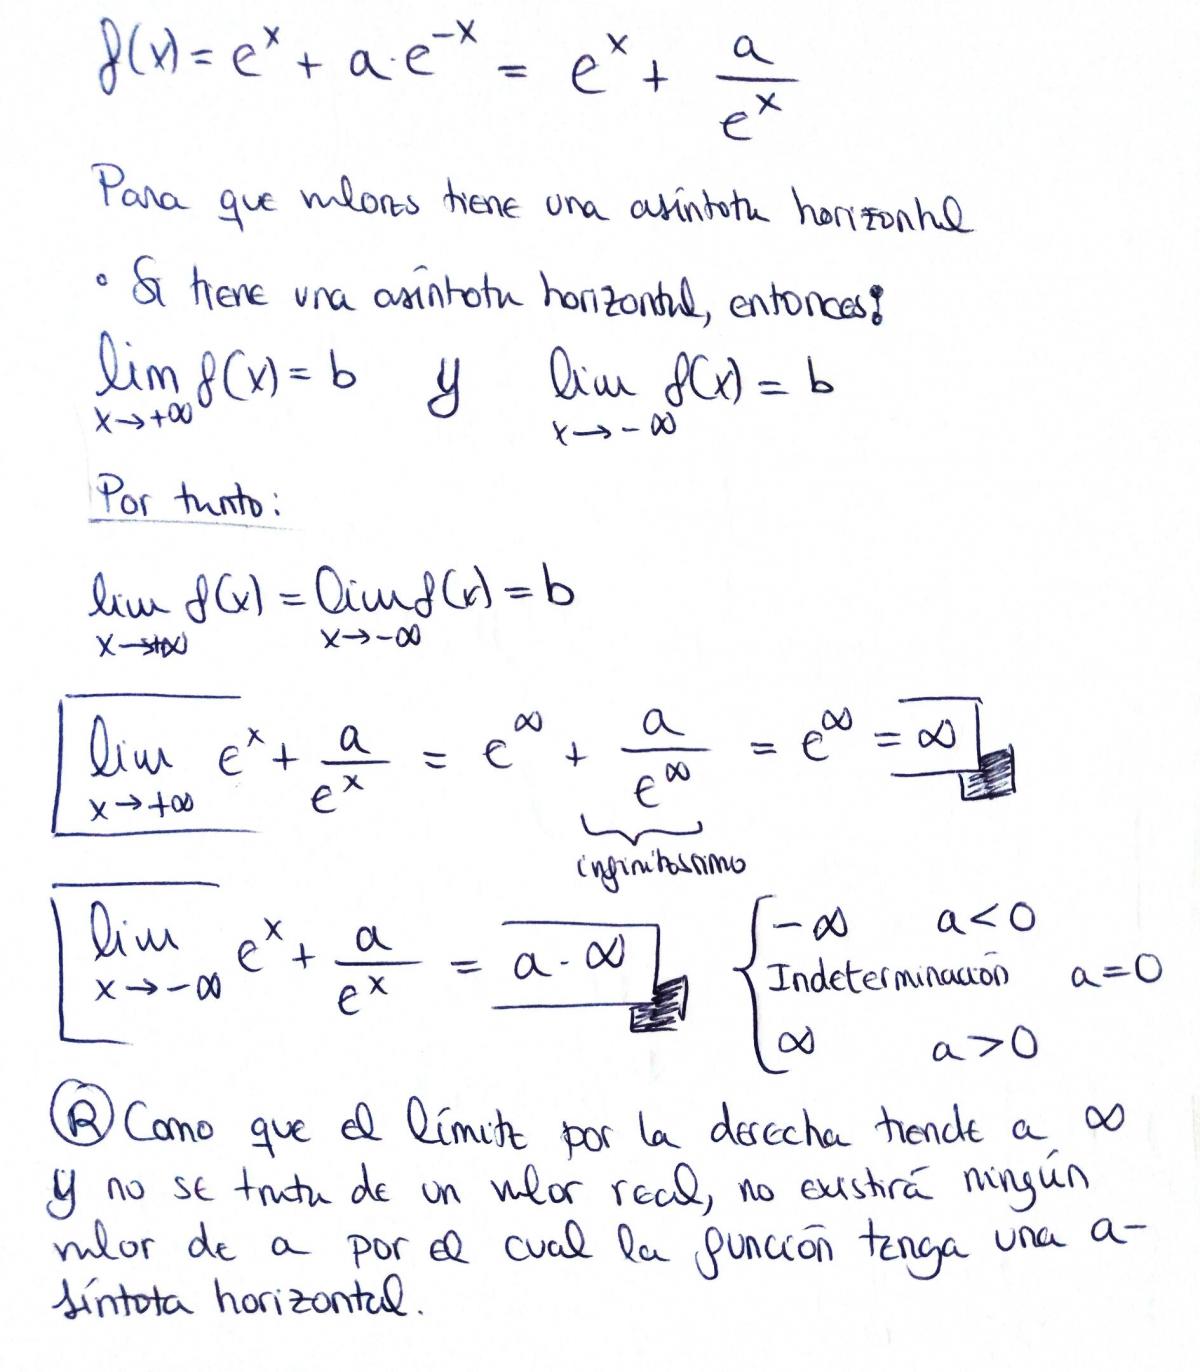 f(x) = e^x + a·e^-x = e^x + a/e^x
Para que valores tiene una asíntota horizontal
• Si tiene una asíntota horizontal, entonces:
lim x→+∞ f(x) = b y lim x→-∞ f(x) = b
Por tanto:
lim x→+∞ f(x) = lim x→-∞ f(x) = b
lim x→+∞ e^x + a/e^x = e^∞ + a/e^∞ = e^∞ = ∞
infinitésimo
lim x→-∞ e^x + a/e^x = a·∞ { -∞ a<0
Indeterminación a=0
∞ a>0
R Como que el límite por la derecha tiende a ∞
y no se trata de un valor real, no existirá ningún
valor de a por el cual la función tenga una a-
síntota horizontal.